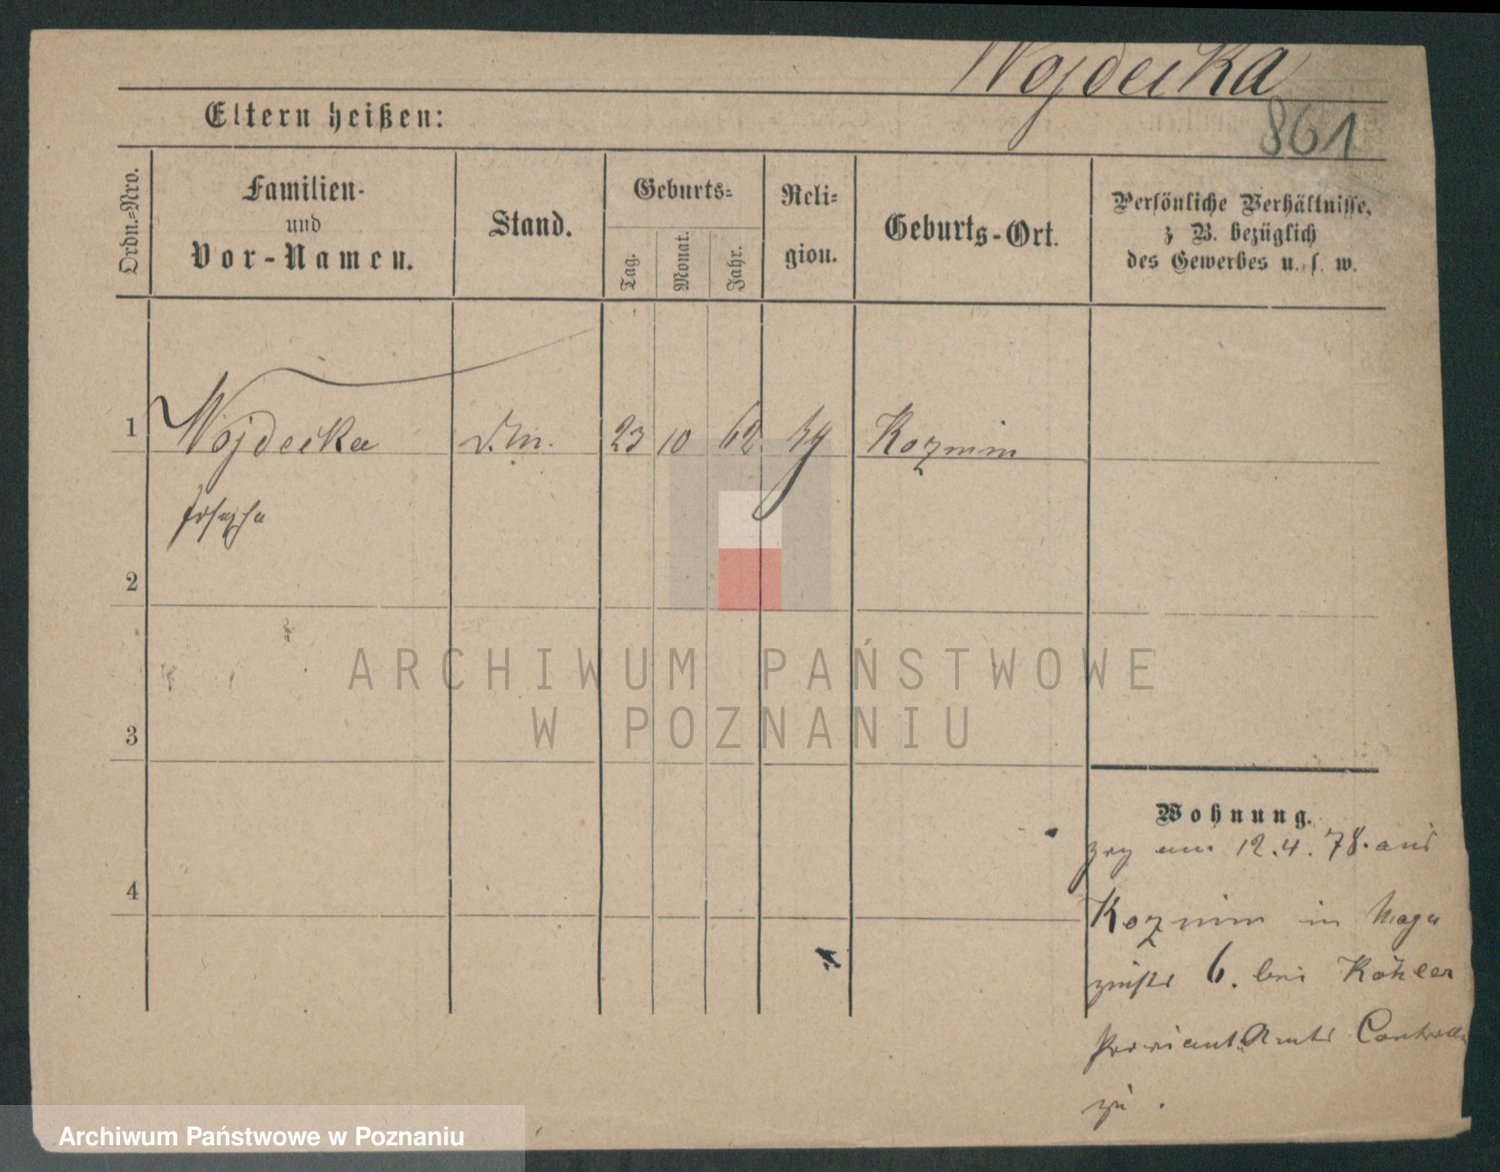 Wojdecka
861
Eltern heißen:
Ordn.=Nro.
Familien-
und
Vor-Namen.
Stand.
Geburts=
Tag.
Monat.
Jahr.
Reli=
gion.
Geburts-Ort.
Persönliche Verhältnisse,
z. B. bezüglich
des Gewerbes u. s. w.
1 Wojdecka 23 10 62 Kozmin
Josepha
2
3
4
Wohnung.
zog am 12.4.78. aus
Kozmin in Maga
zinstr 6. bei Köhler
Proviant Amts Controlle
zu.
ARCHIWUM PAŃSTWOWE
W POZNANIU
Archiwum Państwowe w Poznaniu